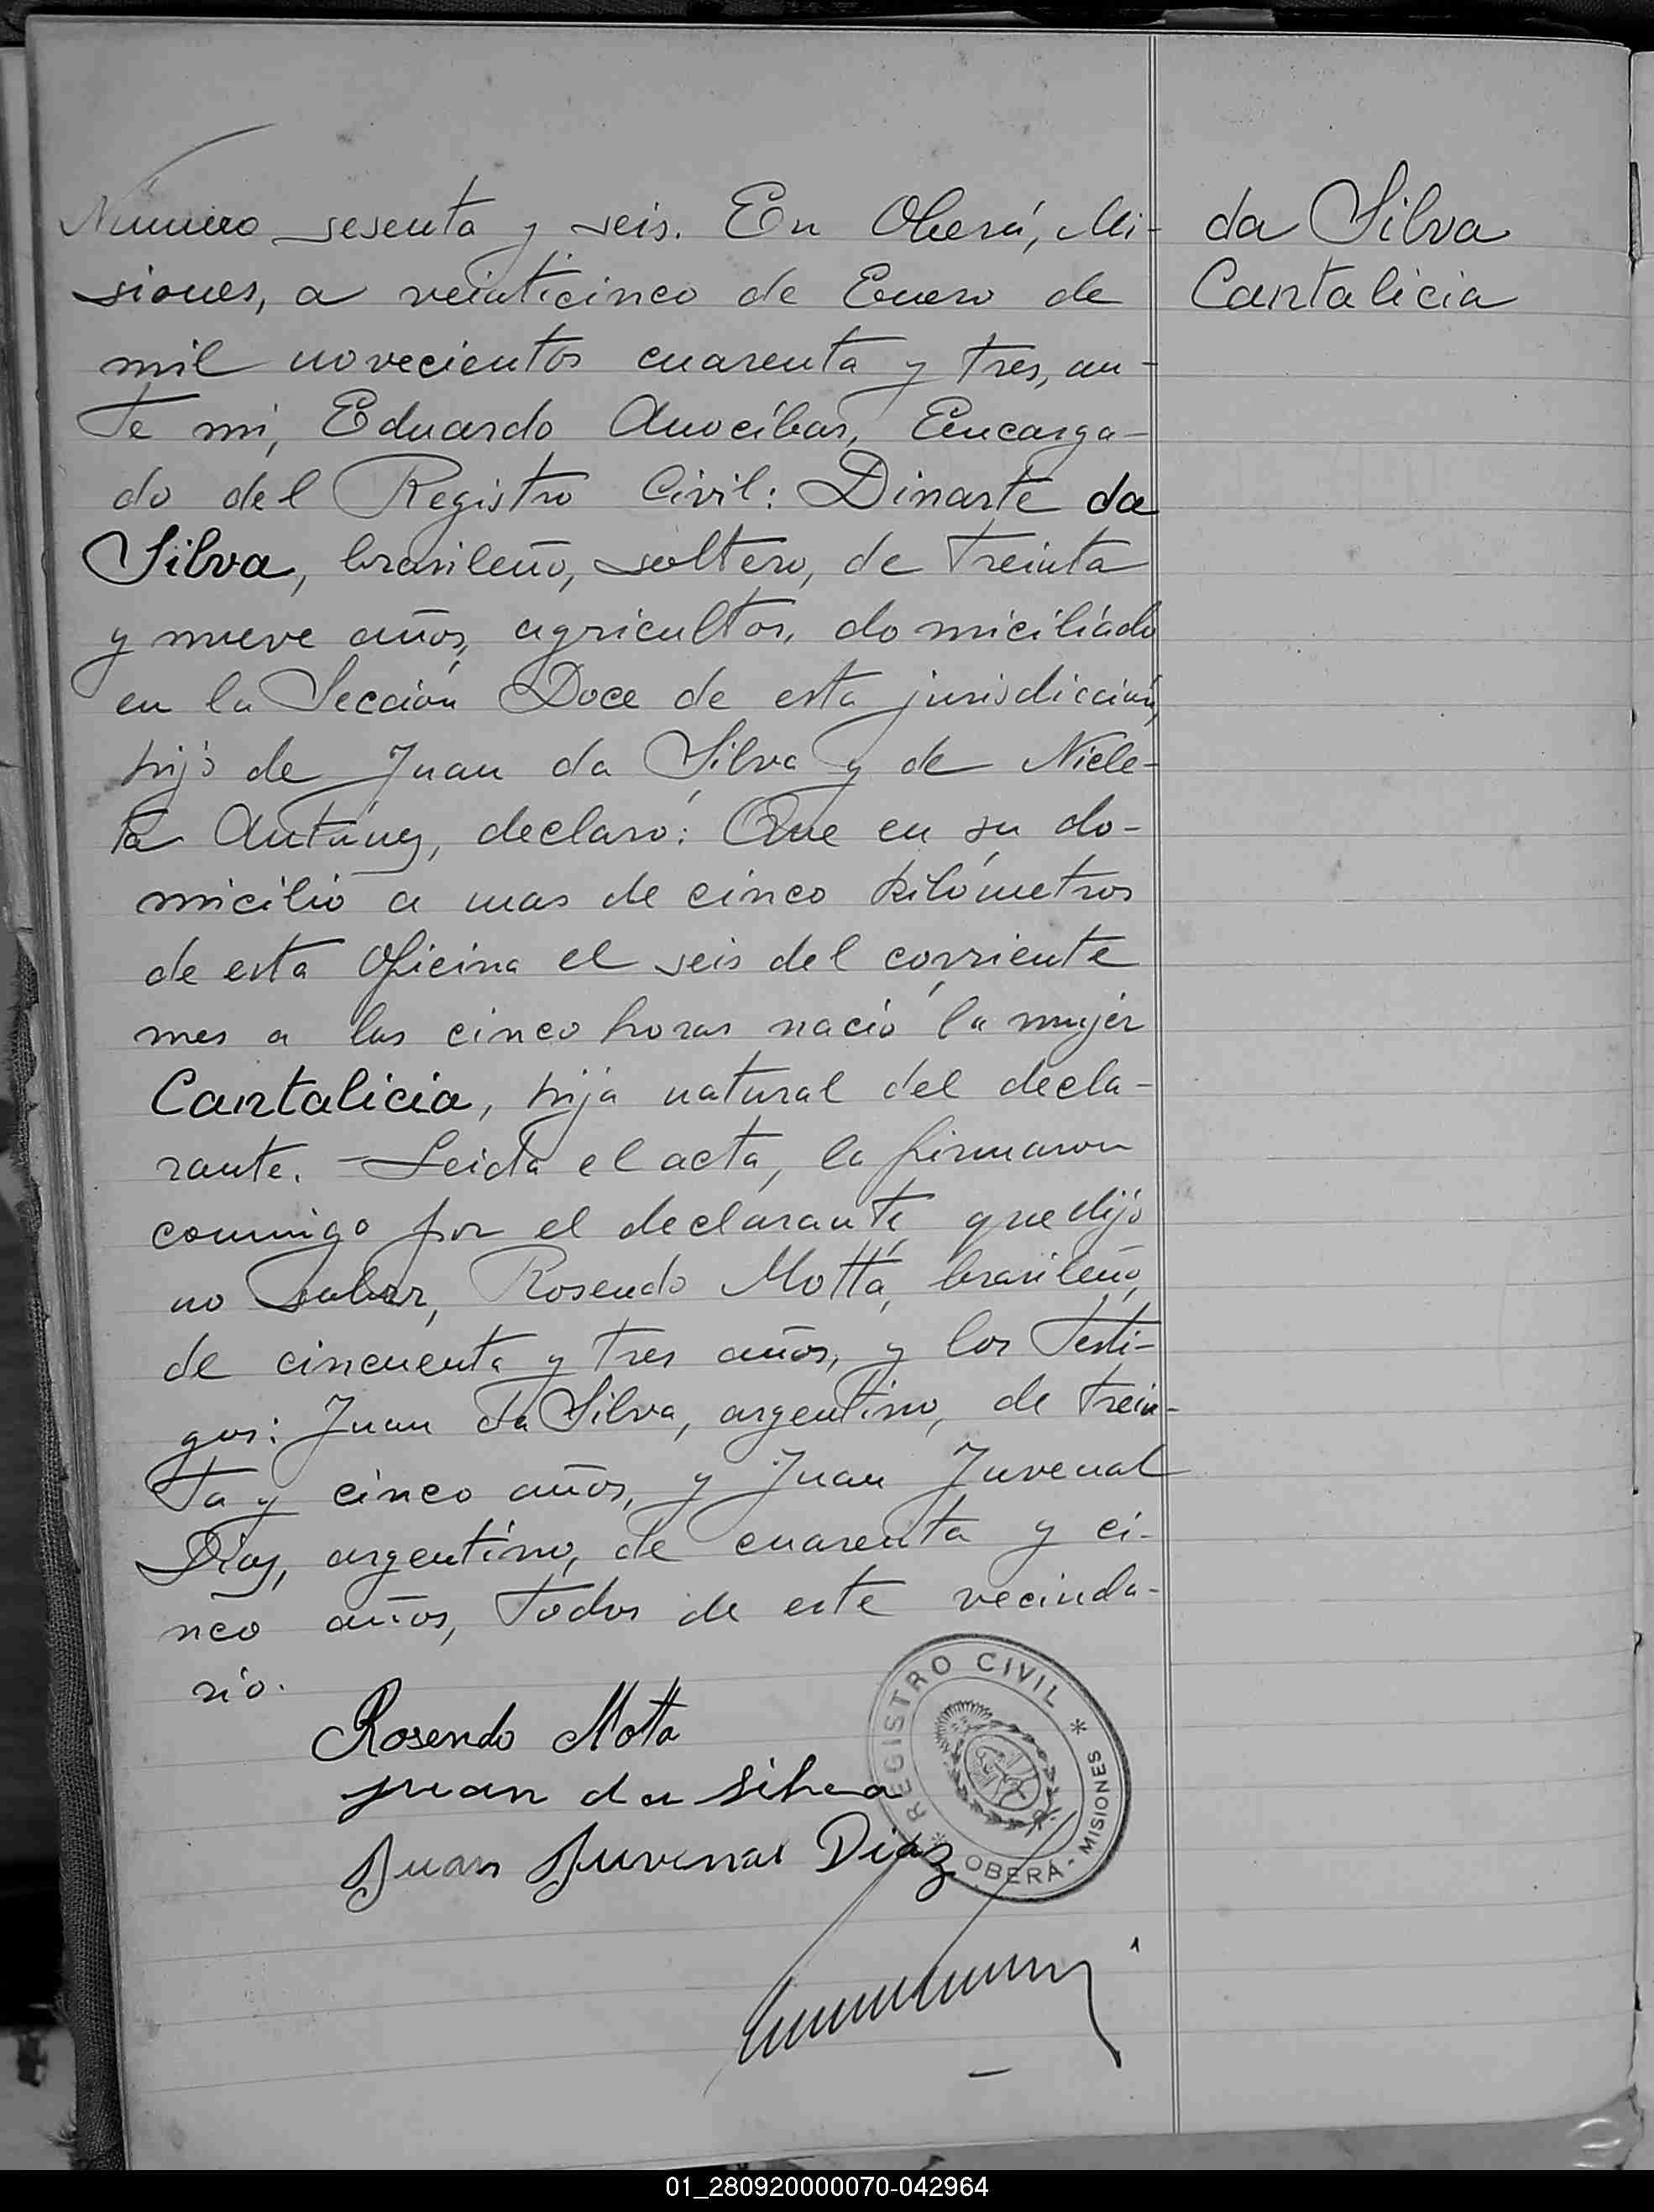 Número sesenta y seis. En Oberá, Mi-
siones, a veinticinco de Enero de
mil novecientos cuarenta y tres, an-
te mi, Eduardo Anocíbar, Encarga-
do del Registro Civil: Dinarte da
Silva, brasileño, soltero, de treinta
y nueve años, agricultor, domiciliado
en la Sección Doce de esta jurisdicción,
hijo de Juan da Silva y de Nicle-
ta Antúnez, declaró: Que en su do-
micilio a mas de cinco kilómetros
de esta Oficina el seis del corriente
mes a las cinco horas nació la mujer
Cantalicia, hija natural del decla-
rante. - Leida el acta, la firmaron
conmigo por el declarante, que dijo
no saber, Rosendo Motta, brasileño,
de cincuenta y tres años, y los testi-
gos: Juan da Silva, argentino, de trein-
ta y cinco años, y Juan Juvenal
Díaz, argentino, de cuarenta y ci-
nco años, todos de este vecinda-
rio.
Rosendo Motta
juan da silva
Juan Juvenal Diaz
da Silva
Cantalicia
* REGISTRO CIVIL *
OBERÁ - MISIONES
01_280920000070-042964